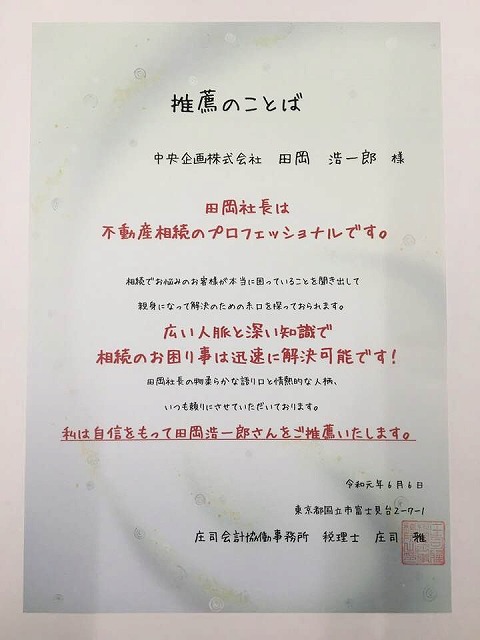 推薦のことば
中央企画株式会社 田岡 浩一郎 様
田岡社長は
不動産相続のプロフェッショナルです。
相続でお悩みのお客様が本当に困っていることを聞き出して
親身になって解決のための糸口を探っておられます。
広い人脈と深い知識で
相続のお困り事は迅速に解決可能です!
田岡社長の物柔らかな語り口と情熱的な人柄、
いつも頼りにさせていただいております。
私は自信をもって田岡浩一郎さんをご推薦いたします。
令和元年6月6日
東京都国立市富士見台2-7-1
庄司会計協働事務所 税理士 庄司 雅